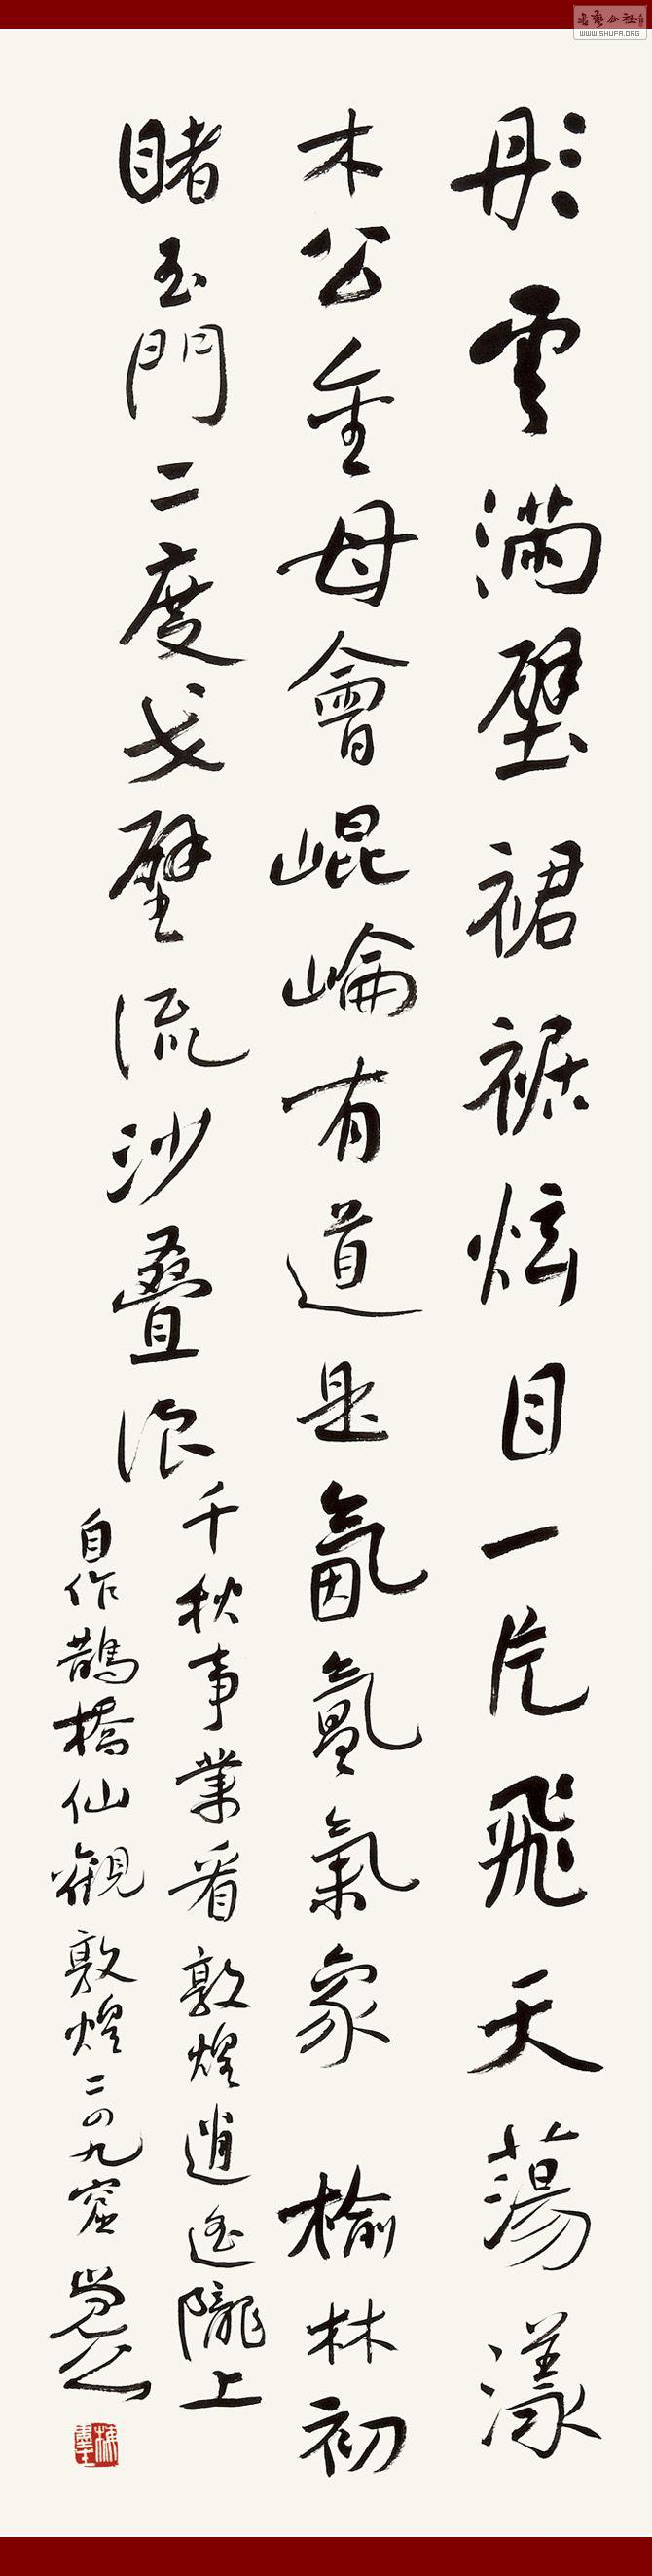 彤雲滿壁裙裾炫目一片飛天蕩漾
木公金母會崐崘有道是氤氳氣象 榆林初
睹玉門二度戈壁流沙疊浪
千秋事業看敦煌逍遙隴上
自作鵲橋仙觀敦煌二四九窟
書藝公社
WWW.SHUFA.ORG